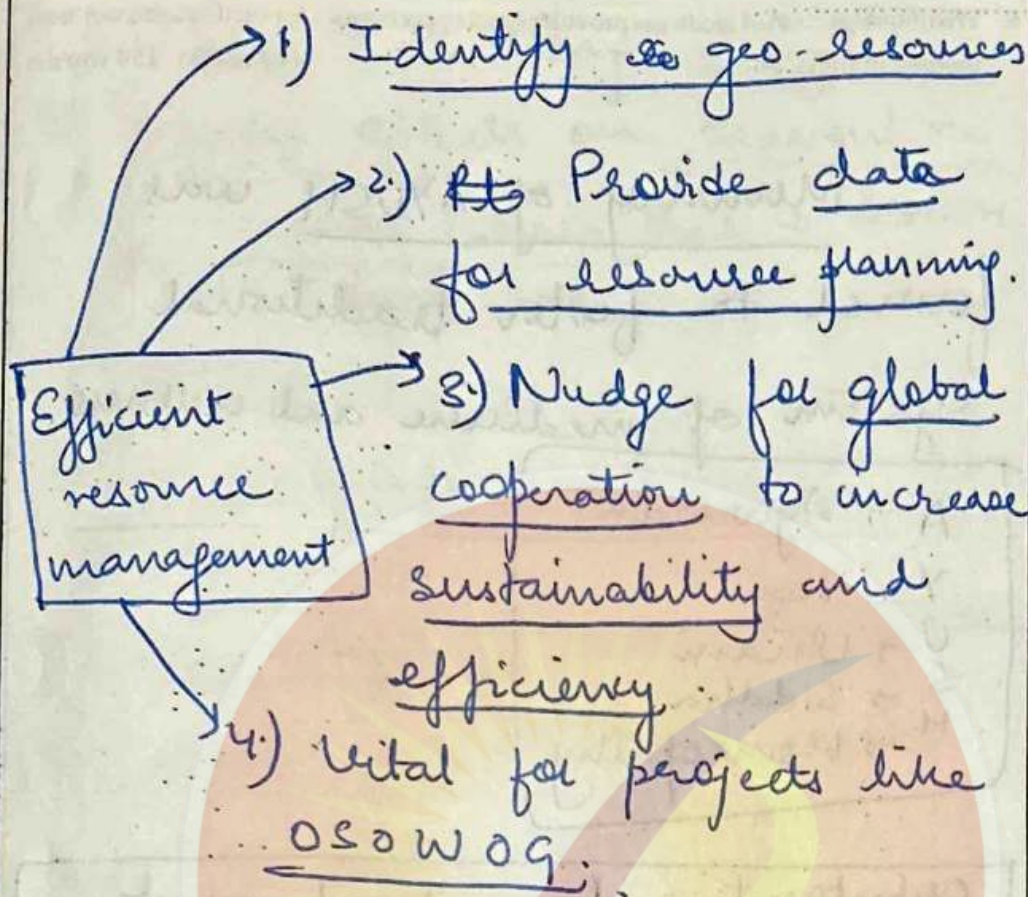 1) Identify geo-resources
2.) Provide data
for resource planning.
Efficient
resource
management
3.) Nudge for global
cooperation to increase
sustainability and
efficiency.
4.) Vital for projects like
OSOWOG.